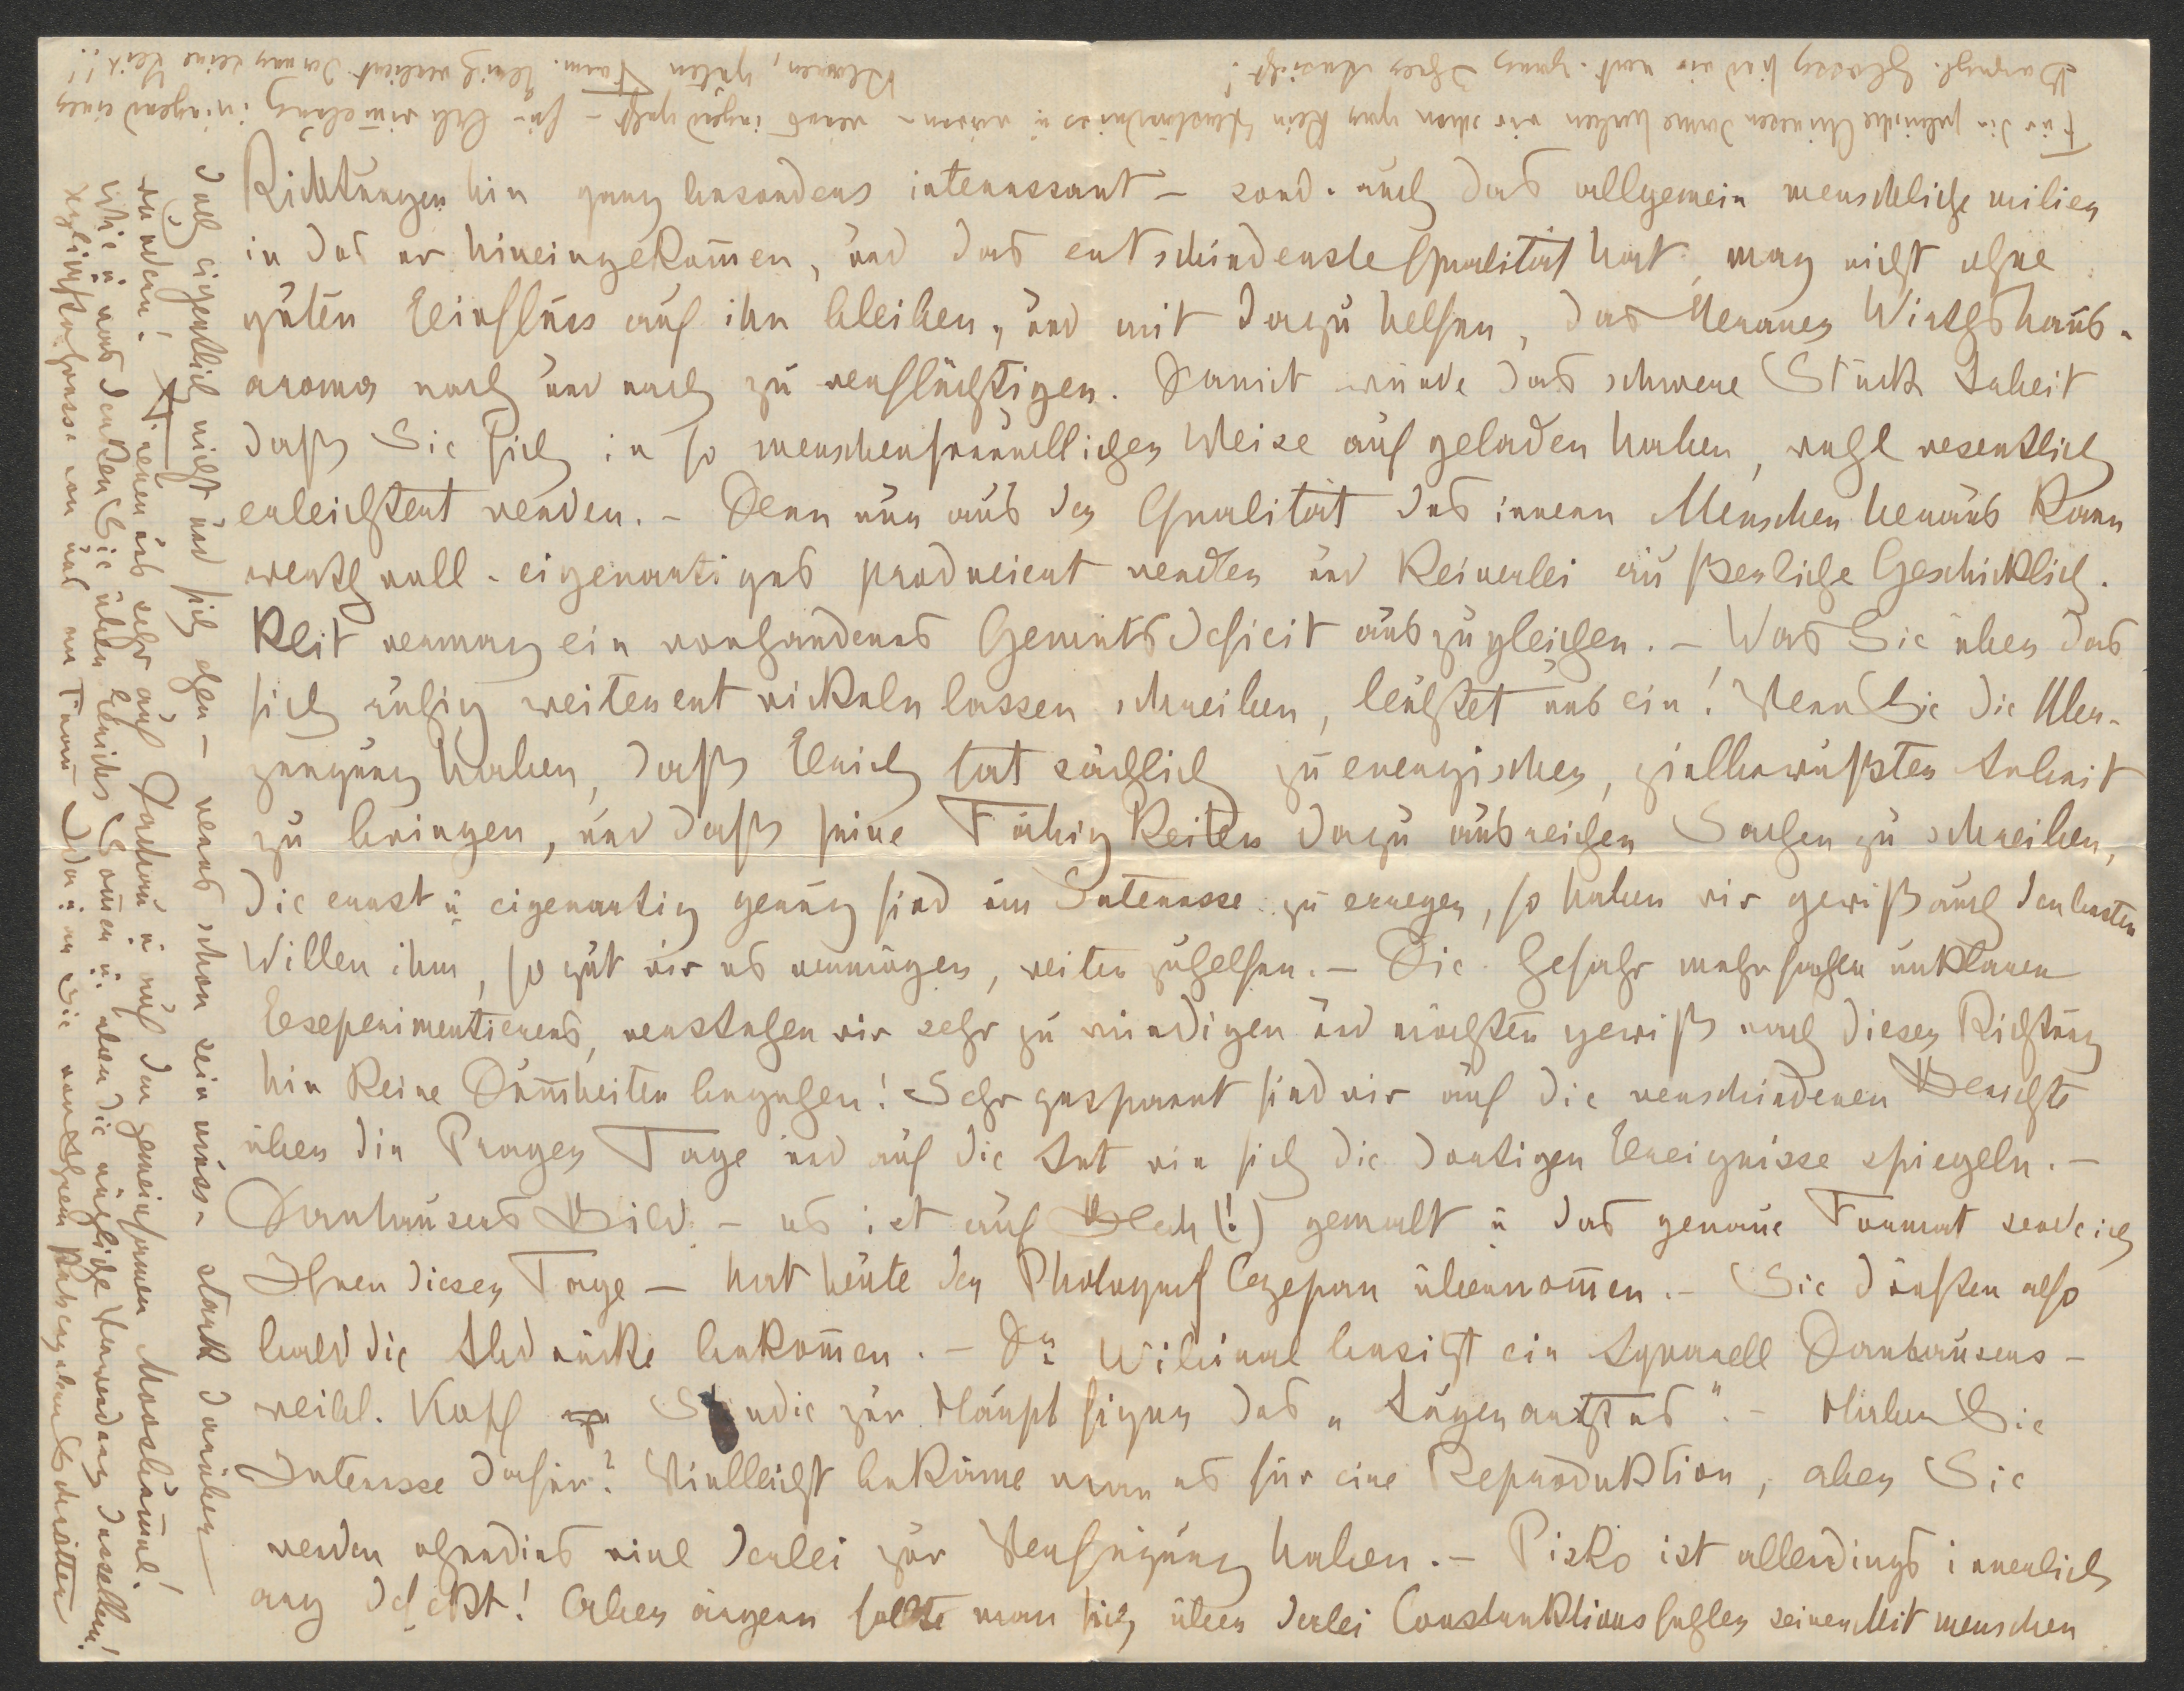 Richtungen hin ganz besonders interessant – sond. auch das allgemein menschliche milieu
in das er hineingekom̄en, und das entschiedenste Qualität hat, mag nicht ohne
guten Einfluss auf ihn bleiben, und mit dazu helfen, das Meraner Wirthshaus-
aroma nach und nach zu verflüchtigen. Damit würde das schwere Stück Arbeit
daß Sie sich in so menschenfreundlicher Weise auf geladen haben, wohl wesentlich
erleichtert werden. – Denn nur aus der Qualität des innern Menschen heraus kann
werthvoll-eigenartiges produciert werden und keinerlei äußerliche Geschicklich-
keit vermag ein vorhandenes Gemütsdeficit auszugleichen. – Was Sie über das
sich ruhig weiterentwickeln lassen schreiben, leuchtet uns ein! Wenn Sie die Über-
zeugung haben, daß Erich tatsächlich zu energischer, zielbewußter Arbeit
zu bringen, und daß seine Fähigkeiten dazu ausreichen Sachen zu schreiben,
die ernst u. eigenartig genug sind um Interesse zu erregen, so haben wir gewiß auch den besten
Willen ihm, so gut wir es vermögen, weiter zu helfen. – Die Gefahr mehrfachen unklaren
Experimentierens, verstehen wir sehr zu würdigen und möchten gewiß nach dieser Richtung
hin keine Dum̄heiten begehen! Sehr gespannt sind wir auf die verschiedenen Berichte
über die Prager Tage und auf die Art wie sich die dortigen Ereignisse spiegeln. –
Danhausers Bild – es ist auf Blech (!) gemalt u. das genaue Format sende ich
Ihnen dieser Tage – hat heute der Photograf Czepan übernom̄en. – Sie dürften also
bald die Abdrücke bekom̄en. – Dr. Wibiral besitzt ein Aquarell Danhausers –
weibl. Kopf Studie zur Hauptfigur des „Augenarztes". – Haben Sie
Interesse dafür? Vielleicht bekäme man es für eine Reproduktion, aber Sie
werden ohnedies viel derlei zur Verfügung haben. – Pisko ist allerdings innerlich
arg defekt! Aber ärgern sollte man sich über derlei Constructionsfehler seiner Mitmenschen
doch eigentlich nicht und sich eher – wenns schon sein muss – stark darüber
wundern! Wir freuen uns sehr auf Dachau u. auf den gemeinsamen Moosbum̄el!
Wie u. was denken Sie über Erichs Som̄er u. über die mögliche Verwendung desselben!
Herzlichste Grüsse von uns an Frau Ida u. an Sie von Ihrem
Für die Chinesen Dame haben wir schon gar kein Verständniss u. wären – wenns irgend geht – für in irgend eines
klaren, guten Form. Emil verliert damit seine Zeit!!
Dargest. Glossy sind wir ganz Ihrer Ansicht!